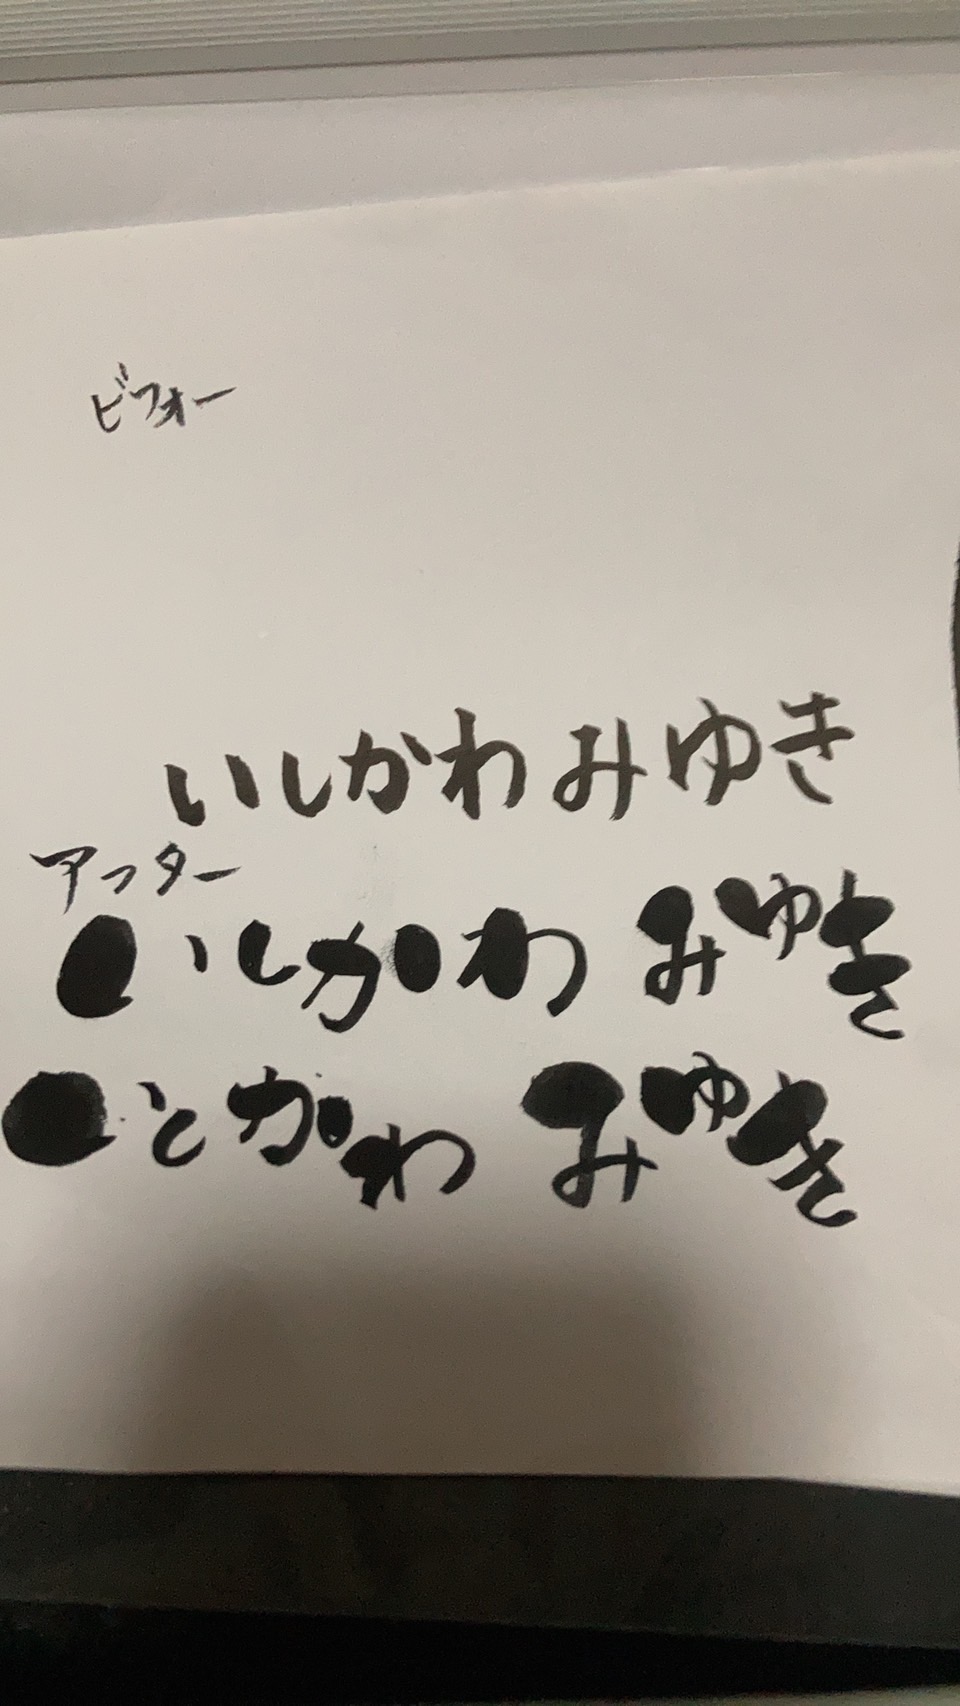 ビフォー
いしかわみゆき
アフター
いしかわ みゆき
いしかわ みゆき